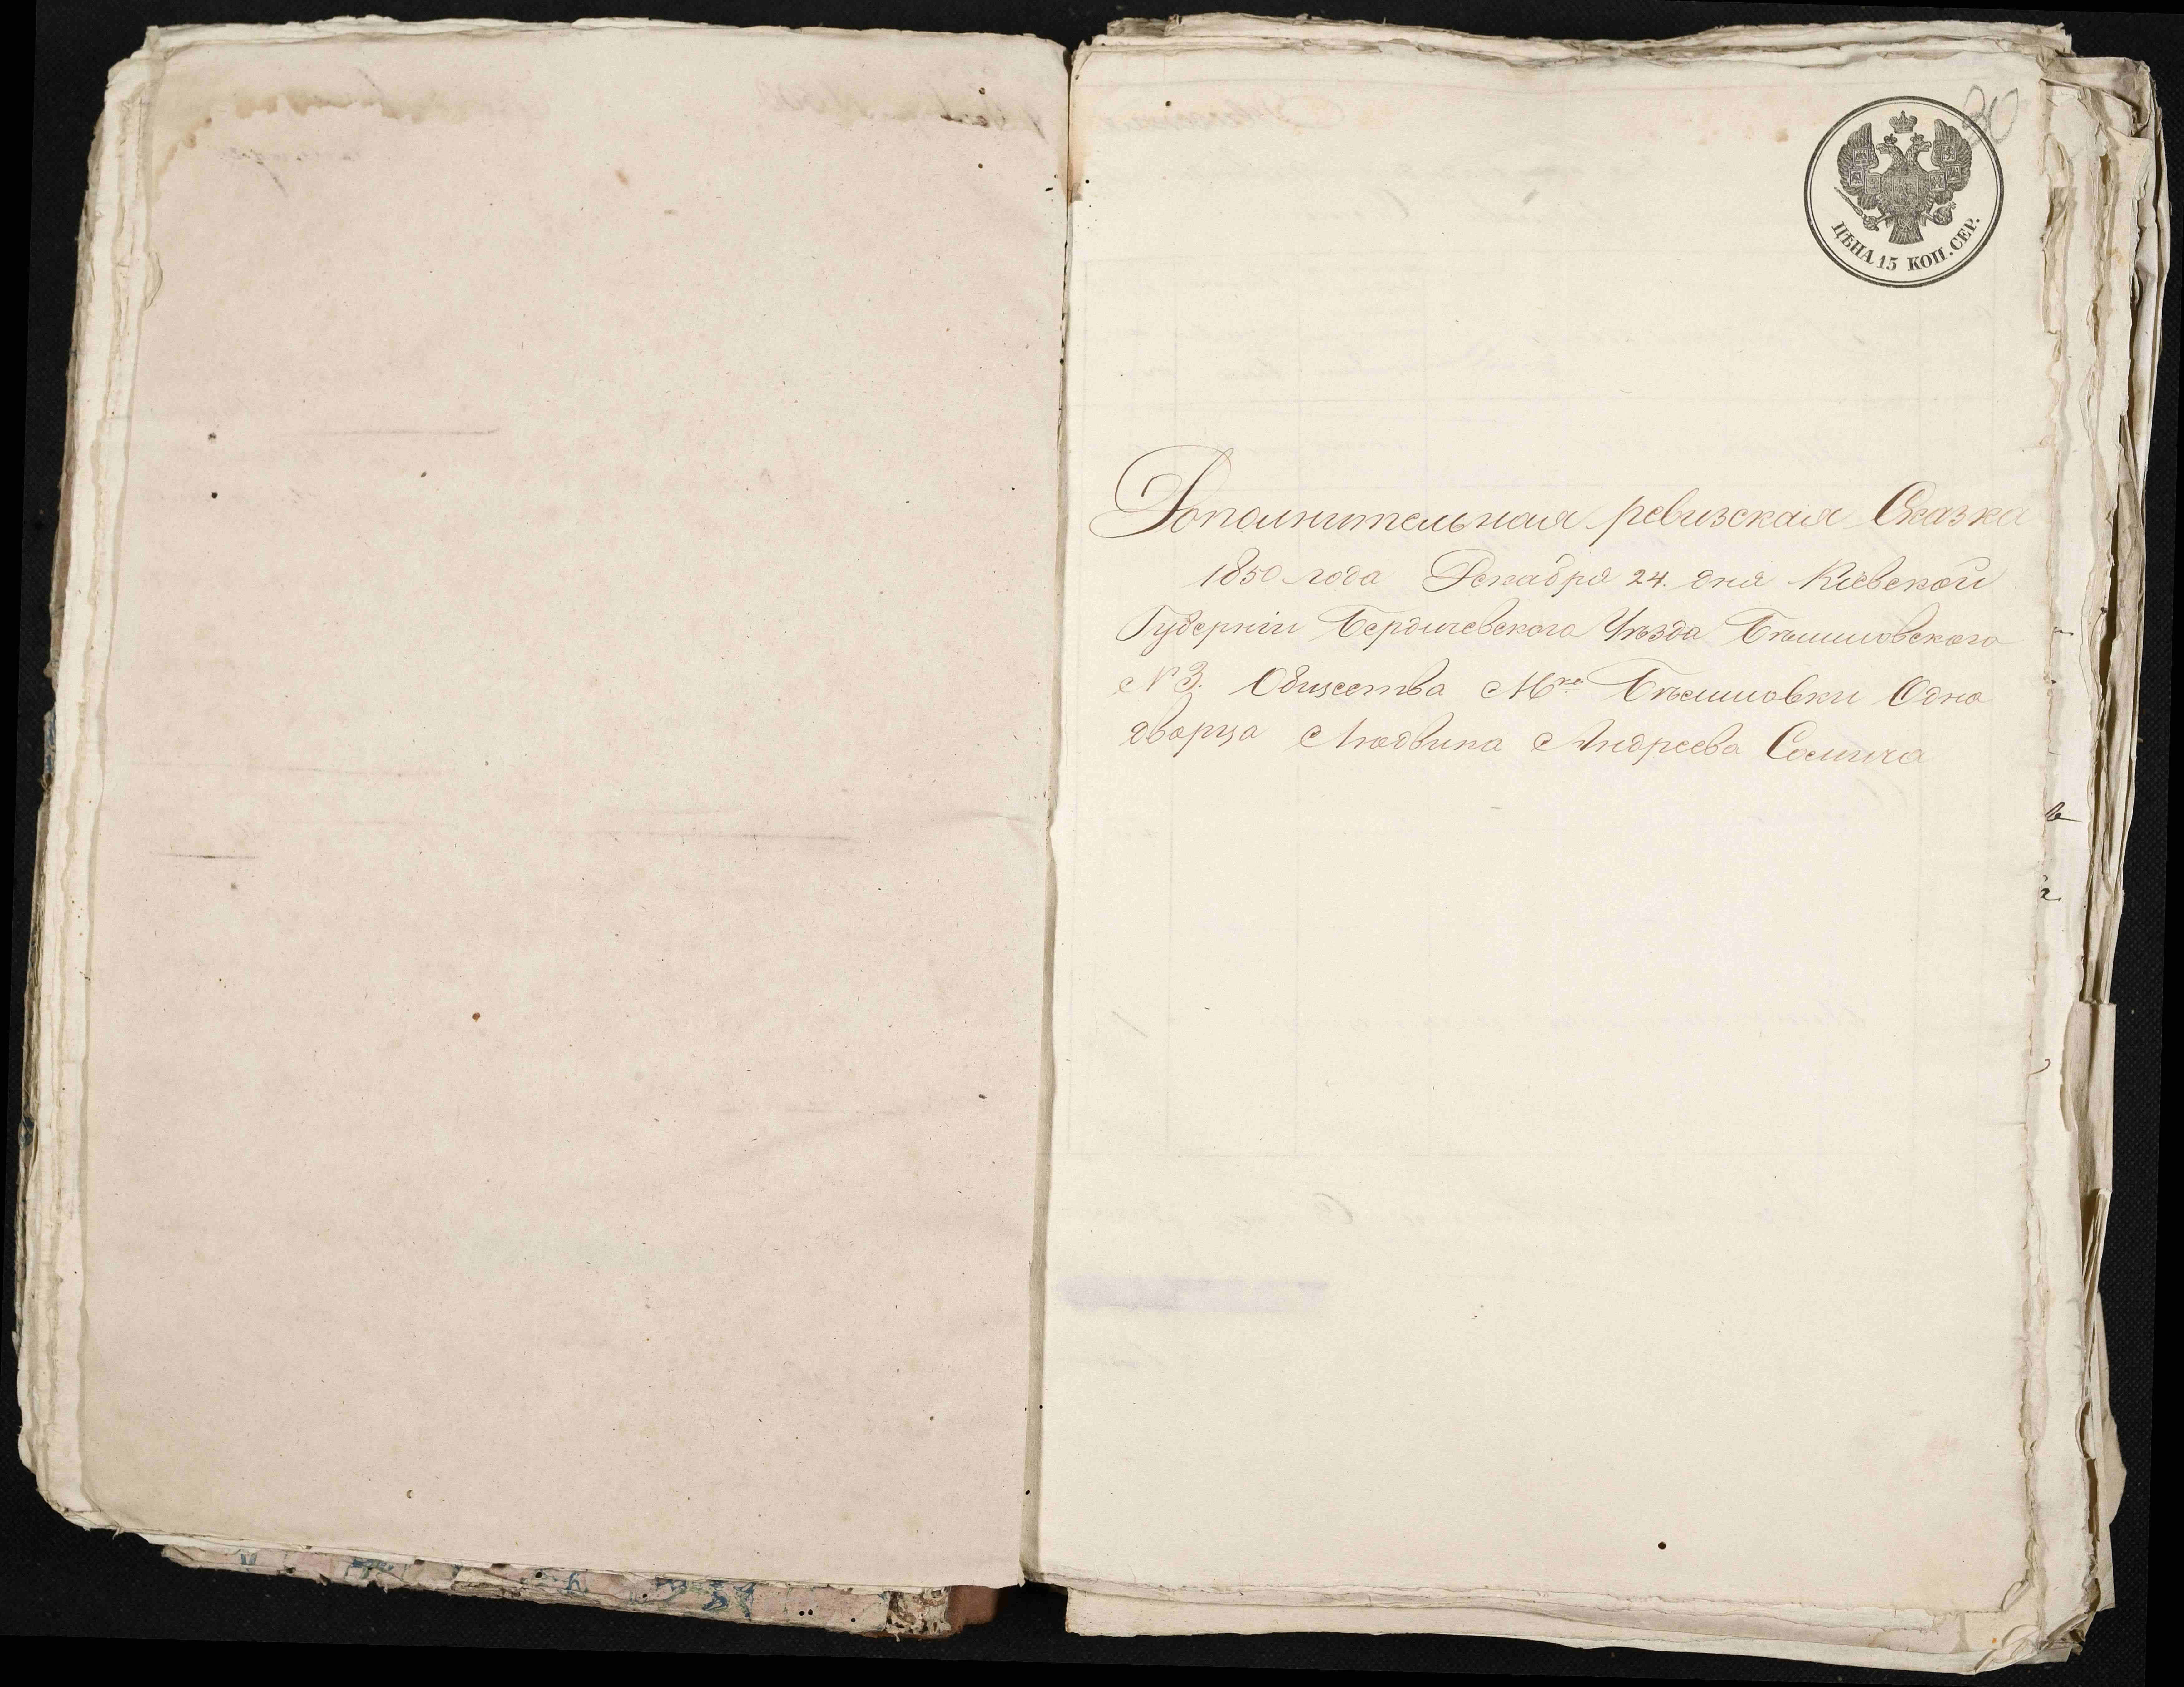 ЦѢНА 15 КОП. СЕР.
Дополнительная ревизская Сказка
1850 года Декабря 24. дня Кіевской
Губерніи Бердичевского Уѣзда Бѣлиловского
№ 3. Общества Мѣс. Бѣлиловки Одно
дворца Людвика Андреева